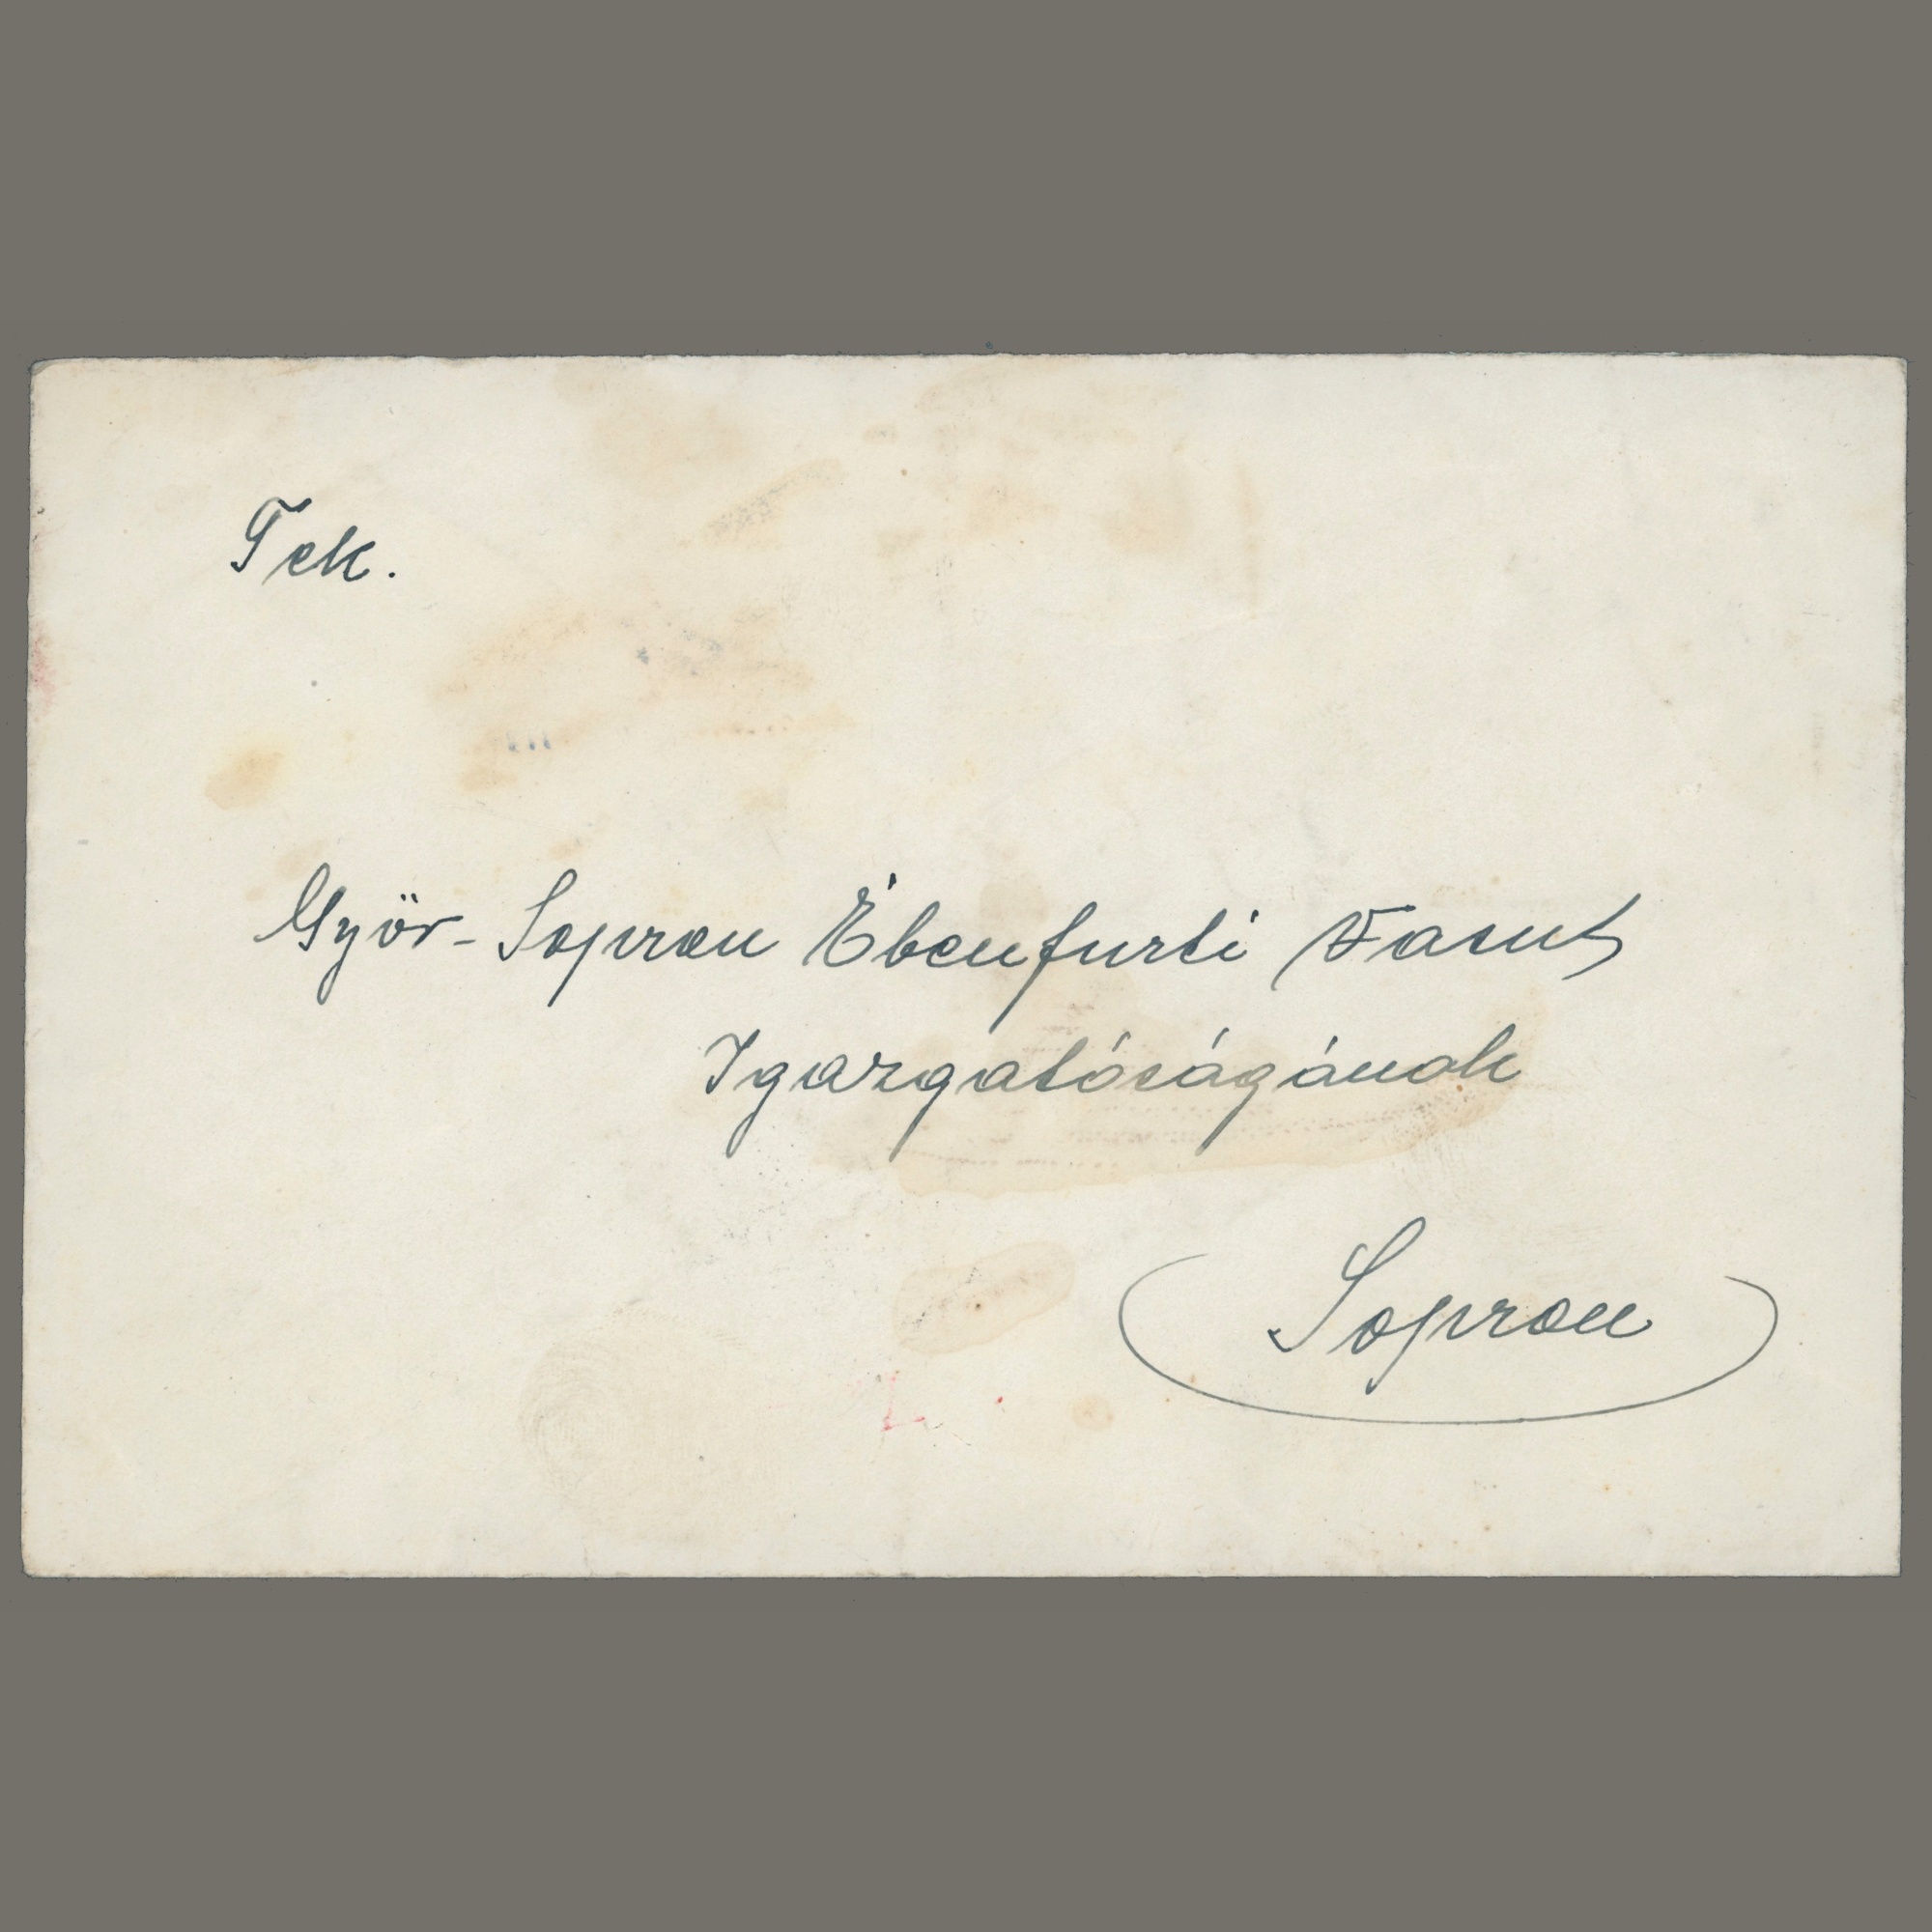 Tek.
Györ-Sopron Ébenfurti Vasut
Igazgatóságának
Sopron